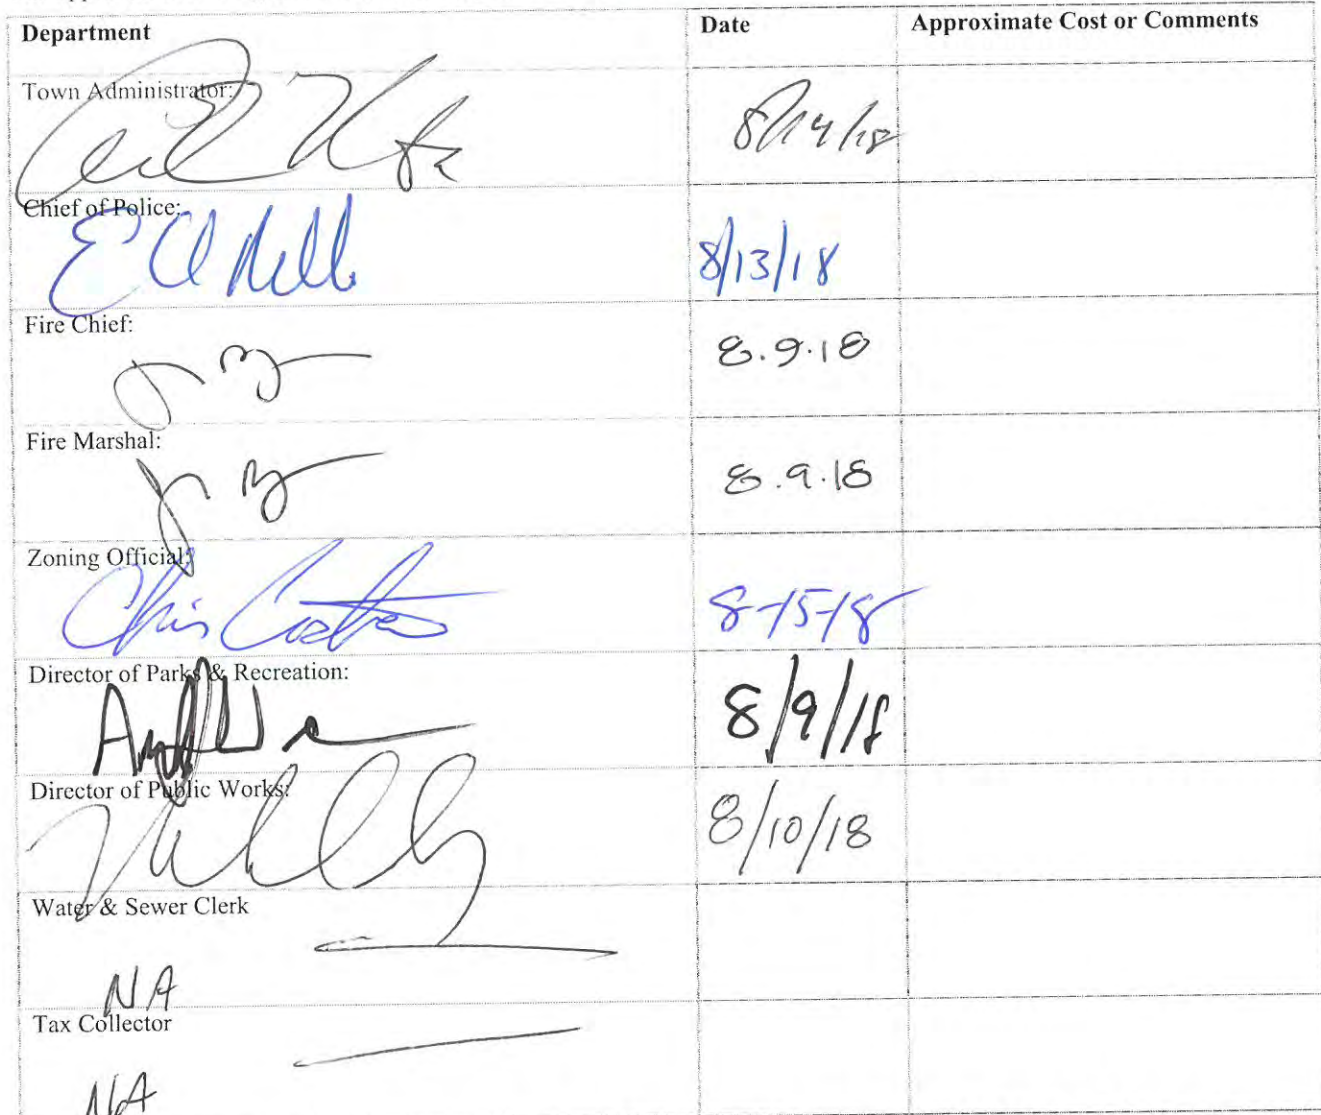 Department Date Approximate Cost or Comments
Town Administrator: 8/14/18
Chief of Police: 8/13/18
Fire Chief: 8.9.18
Fire Marshal: 8.9.18
Zoning Official: Chris 8-15-18
Director of Parks & Recreation: 8/9/18
Director of Public Works: 8/10/18
Water & Sewer Clerk
NA
Tax Collector
NA